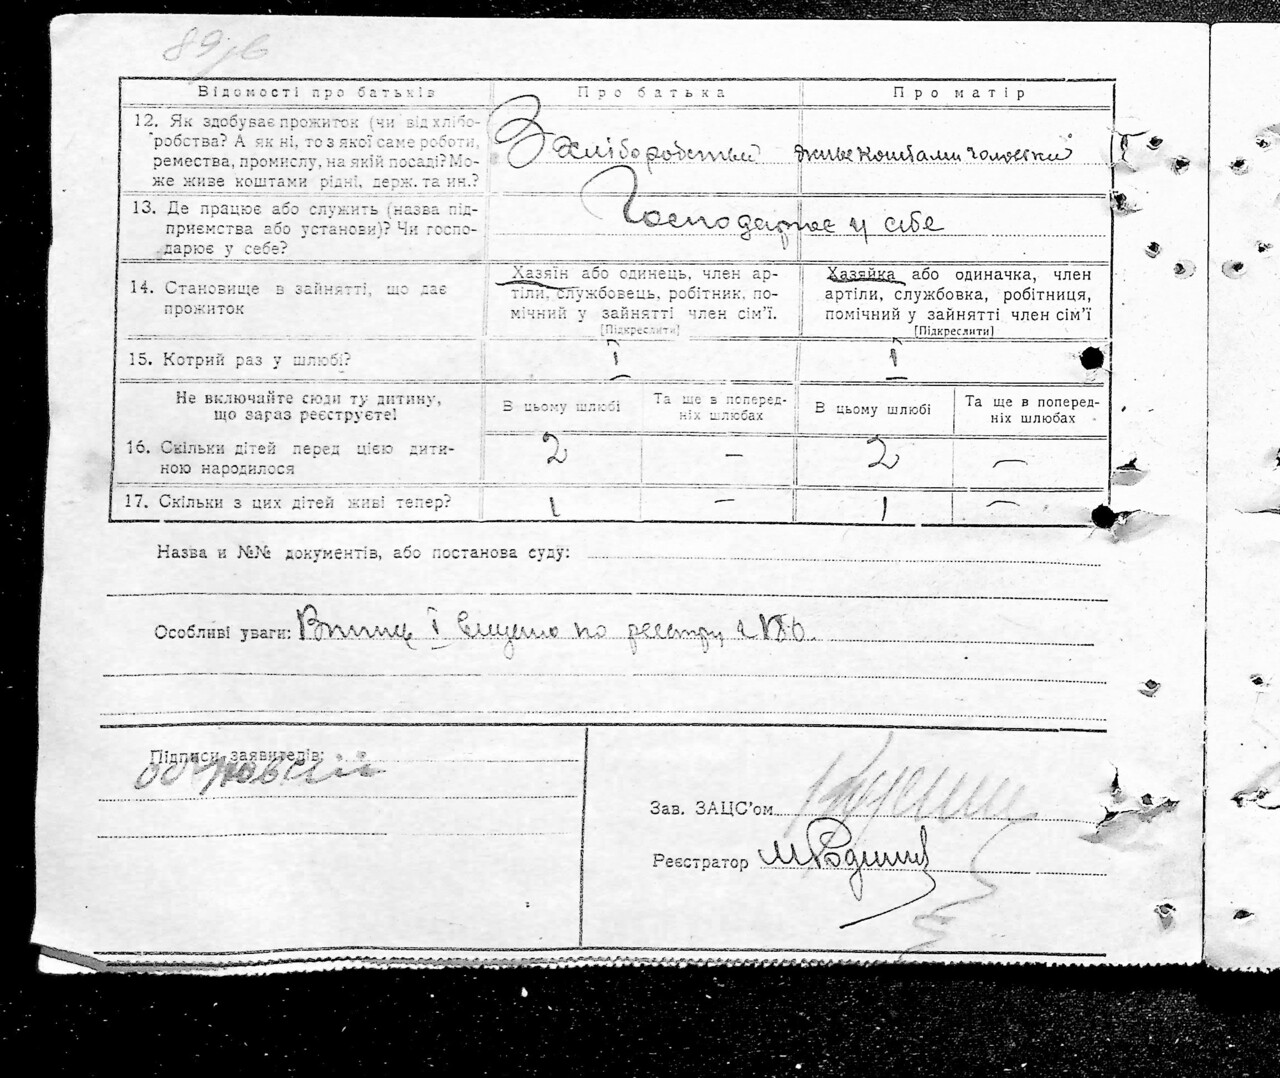 Відомості про батьків Про батька Про матір
12. Як здобуває прожиток (чи від хлібо-
робства? А як ні, то з якої саме роботи,
ремества, промислу, на якій посаді? Мо-
же живе коштами рідні, держ. та ин.?
З хліборобства живе коштами чоловіка
13. Де працює або служить (назва під-
приємства або установи)? Чи госпо-
дарює у себе?
Господарює у себе
14. Становище в зайнятті, що дає
прожиток
Хазяїн або одинець, член ар-
тіли, службовець, робітник, по-
мічний у зайнятті член сім'ї.
[Підкреслити]
Хазяйка або одиначка, член
артіли, службовка, робітниця,
помічний у зайнятті член сім'ї
[Підкреслити]
15. Котрий раз у шлюбі? I I
Не включайте сюди ту дитину,
що зараз реєструєте!
В цьому шлюбі
Та ще в поперед-
ніх шлюбах
В цьому шлюбі
Та ще в поперед-
ніх шлюбах
16. Скільки дітей перед цією дити-
ною народилося
2 — 2 —
17. Скільки з цих дітей живі тепер? 1 — 1 —
Назва и №№ документів, або постанова суду:
Особливі уваги: по реєстру
Підписи заявителів:
Зав. ЗАЦС'ом
Реєстратор